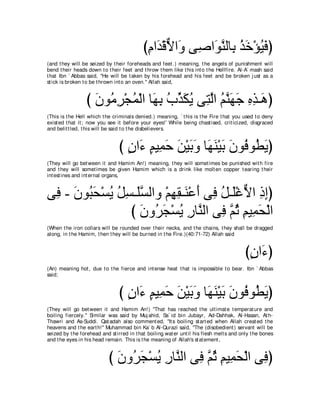 (فَيُؤْخَذُ بِالنَّوَاصِي وَالْأَقْدَامِ)
(and they will be seized by their foreheads and feet.) meaning, the angels of punishment will
bend their heads down to their feet and throw them like this into the Hellfire. Al-A`mash said
that Ibn `Abbas said, "He will be taken by his forehead and his feet and be broken just as a
stick is broken to be thrown into an oven." Allah said,
(هَـذِهِ جَهَنَّمُ الَّتِى يُكَذِّبُ بِهَا الْمُجْرِمُونَ )
(This is the Hell which the criminals denied.) meaning, `this is the Fire that you used to deny
existed that it; now you see it before your eyes!' While being chastised, criticized, disgraced
and belittled, this will be said to the disbelievers.
(يَطُوفُونَ بَيْنَهَا وَبَيْنَ حَمِيمٍ ءَانٍ )
(They will go between it and Hamim An!) meaning, they will sometimes be punished with fire
and they will sometimes be given Hamim which is a drink like molten copper tearing their
intestines and internal organs,
(إِذِ الاٌّغْلَـلُ فِى أَعْنَـقِهِمْ والسَّلَـسِلُ يُسْحَبُونَ - فِى
الْحَمِيمِ ثُمَّ فِى النَّارِ يُسْجَرُونَ )
(When the iron collars will be rounded over their necks, and the chains, they shall be dragged
along, in the Hamim, then they will be burned in the Fire.)(40:71-72) Allah said
(ءَانٍ)
(An) meaning hot, due to the fierce and intense heat that is impossible to bear. Ibn `Abbas
said;
(يَطُوفُونَ بَيْنَهَا وَبَيْنَ حَمِيمٍ ءَانٍ )
(They will go between it and Hamim An!) "That has reached the ultimate temperature and
boiling fiercely." Similar was said by Mujahid, Sa`id bin Jubayr, Ad-Dahhak, Al-Hasan, Ath-
Thawri and As-Suddi. Qatadah also commented, "Its boiling started when Allah created the
heavens and the earth!" Muhammad bin Ka`b Al-Qurazi said, "The (disobedient) servant will be
seized by the forehead and stirred in that boiling water until his flesh melts and only the bones
and the eyes in his head remain. This is the meaning of Allah's statement,
(فِى الْحَمِيمِ ثُمَّ فِى النَّارِ يُسْجَرُونَ )